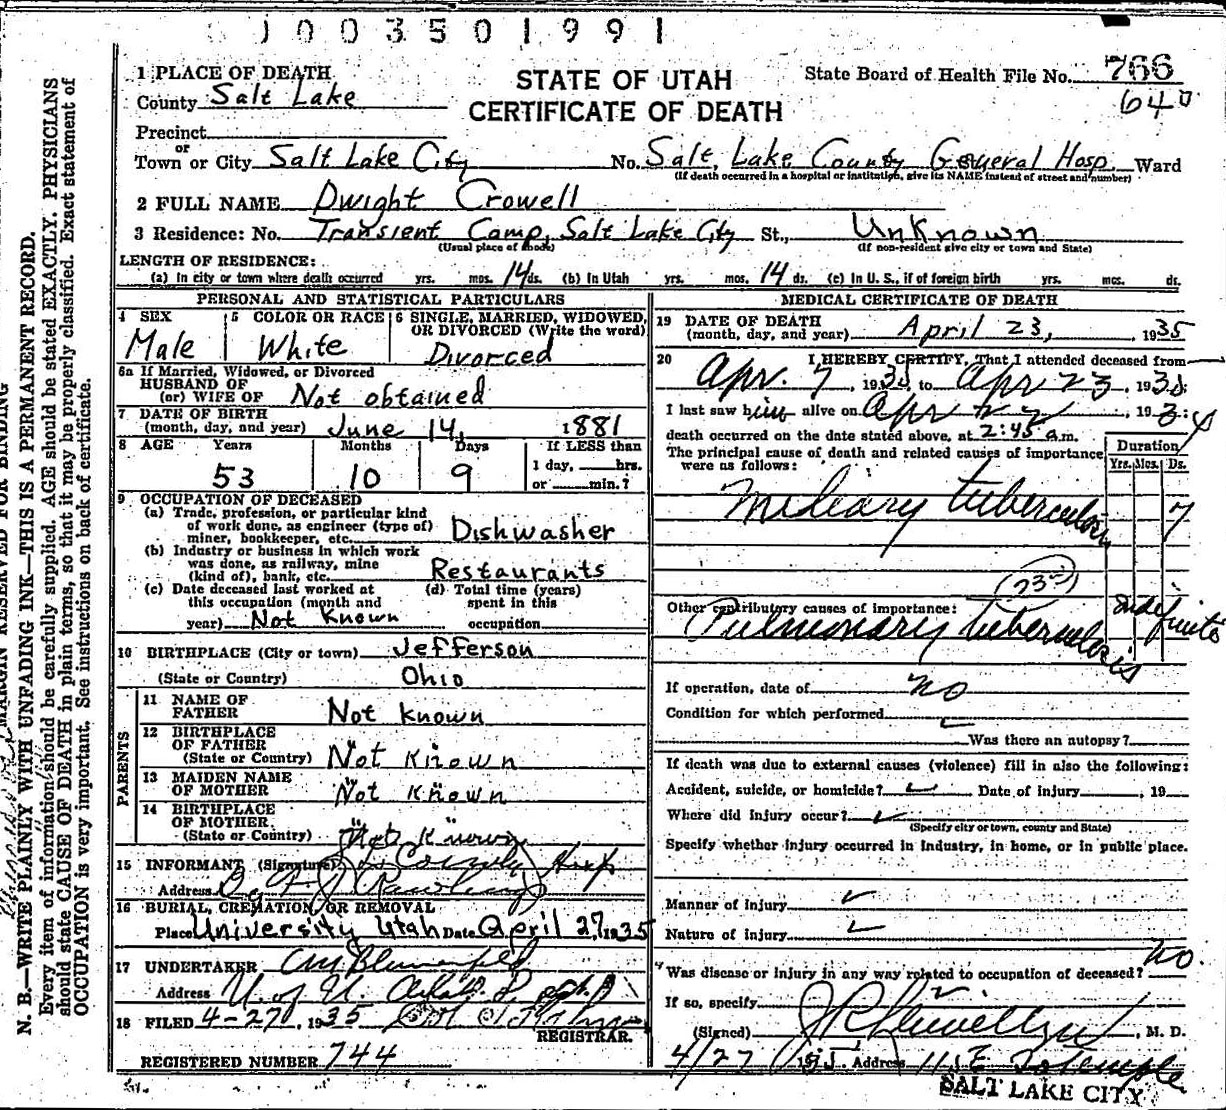 1003501991
1 PLACE OF DEATH
STATE OF UTAH
State Board of Health File No. 766
County Salt Lake
CERTIFICATE OF DEATH
640
Precinct
or
Town or City Salt Lake City No. Salt Lake County General Hosp. Ward
(If death occurred in a hospital or institution, give its NAME instead of street and number)
2 FULL NAME Dwight Crowell
3 Residence: No. Transient Camp, Salt Lake City St., Unknown
(Usual place of abode) (If non-resident give city or town and State)
LENGTH OF RESIDENCE:
(a) In city or town where death occurred yrs. mos. 14 ds. (b) In Utah yrs. mos. 14 ds. (c) In U. S., if of foreign birth yrs. mos. ds.
PERSONAL AND STATISTICAL PARTICULARS
4 SEX 5 COLOR OR RACE 6 SINGLE, MARRIED, WIDOWED,
OR DIVORCED (Write the word)
Male White Divorced
6a If Married, Widowed, or Divorced
HUSBAND OF
(or) WIFE OF Not obtained
7 DATE OF BIRTH
(month, day, and year) June 14, 1881
8 AGE Years Months Days If LESS than
53 10 9 1 day, hrs.
or min.?
9 OCCUPATION OF DECEASED
(a) Trade, profession, or particular kind
of work done, as engineer (type of)
miner, bookkeeper, etc. Dishwasher
(b) Industry or business in which work
was done, as railway, mine
(kind of), bank, etc. Restaurants
(c) Date deceased last worked at (d) Total time (years)
this occupation (month and spent in this
year) Not Known occupation
10 BIRTHPLACE (City or town) Jefferson
(State or Country) Ohio
PARENTS
11 NAME OF
FATHER Not known
12 BIRTHPLACE
OF FATHER
(State or Country) Not Known
13 MAIDEN NAME
OF MOTHER Not Known
14 BIRTHPLACE
OF MOTHER
(State or Country) Not Known
15 INFORMANT (Signature) S. L. County Hosp
Address
16 BURIAL, CREMATION, OR REMOVAL
Place University Utah Date April 27, 1935
17 UNDERTAKER
Address U. of U.
18 FILED 4-27, 1935
REGISTRAR.
REGISTERED NUMBER 744
MEDICAL CERTIFICATE OF DEATH
19 DATE OF DEATH
(month, day, and year) April 23, 1935
20 I HEREBY CERTIFY, That I attended deceased from
Apr. 7, 1935 to Apr 23, 1935
I last saw him alive on Apr 22, 193
death occurred on the date stated above, at 2:45 a.m.
The principal cause of death and related causes of importance
were as follows:
Duration
Yrs. Mos. Ds.
Mileary tuberculosis 7
Other contributory causes of importance:
Pulmonary tuberculosis Indefinite
If operation, date of no
Condition for which performed
Was there an autopsy?
If death was due to external causes (violence) fill in also the following:
Accident, suicide, or homicide? Date of injury , 19
Where did injury occur?
(Specify city or town, county and State)
Specify whether injury occurred in industry, in home, or in public place.
Manner of injury
Nature of injury
Was disease or injury in any way related to occupation of deceased? No.
If so, specify
(Signed) J R Llewellyn, M. D.
4/27 1935. Address 115 E So Temple
SALT LAKE CITY
MARGIN RESERVED FOR BINDING
N. B.—WRITE PLAINLY WITH UNFADING INK—THIS IS A PERMANENT RECORD.
Every item of information should be carefully supplied. AGE should be stated EXACTLY. PHYSICIANS
should state CAUSE OF DEATH in plain terms, so that it may be properly classified. Exact statement of
OCCUPATION is very important. See instructions on back of certificate.